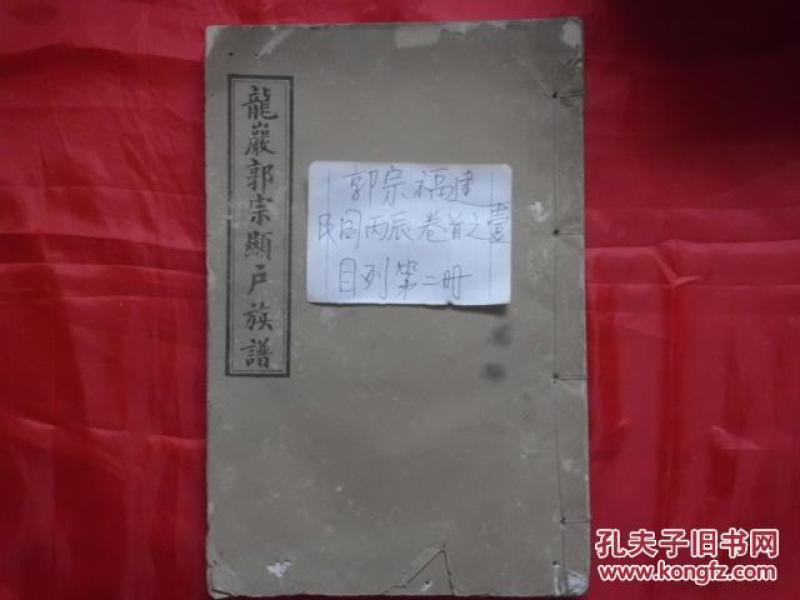 龍巖郭宗顯戶族譜
郭宗福建
民国丙辰卷首之壹
目列第二册
孔夫子旧书网
www.kongfz.com